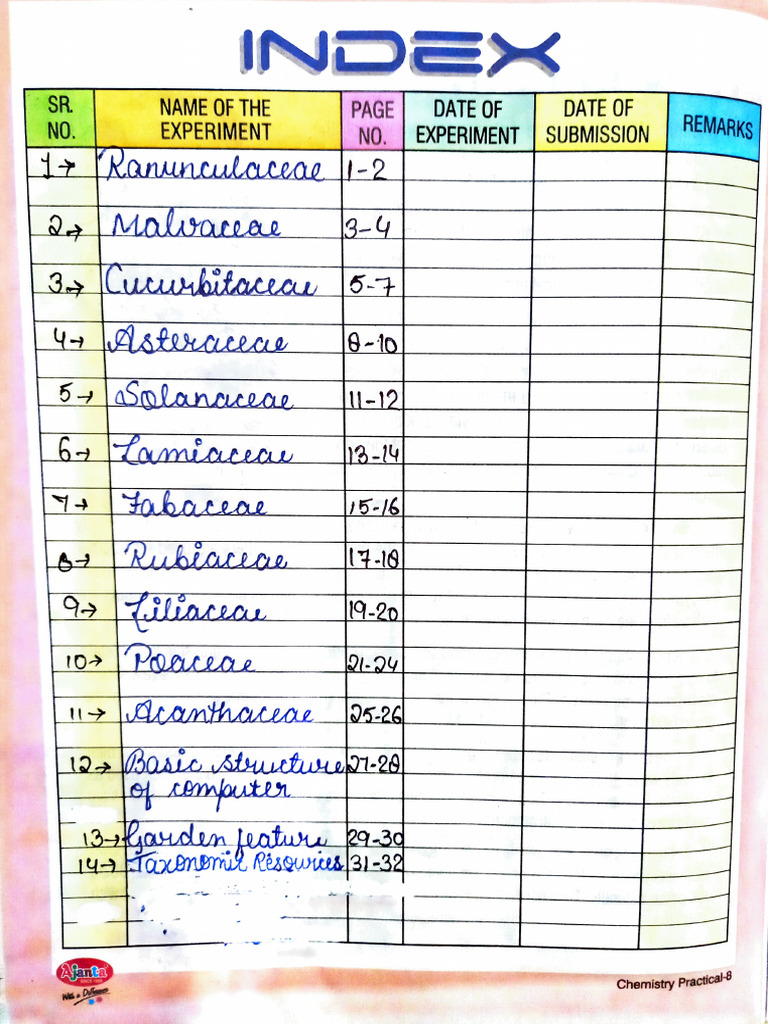 INDEX
SR. NO. NAME OF THE EXPERIMENT PAGE NO. DATE OF EXPERIMENT DATE OF SUBMISSION REMARKS
1→ Ranunculaceae 1-2
2→ Malvaceae 3-4
3→ Cucurbitaceae 5-7
4→ Asteraceae 8-10
5→ Solanaceae 11-12
6→ Lamiaceae 13-14
7→ Fabaceae 15-16
8→ Rubiaceae 17-18
9→ Liliaceae 19-20
10→ Poaceae 21-24
11→ Acanthaceae 25-26
12→ Basic structure 27-28
of computer
13→ Garden feature 29-30
14→ Taxonomic Resources 31-32
Ajanta
SINCE 1960
With a Difference
Chemistry Practical-8